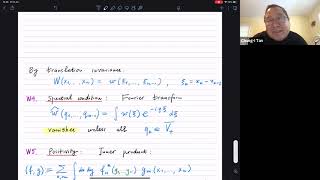 By translation invariance:
W(x₁, .. xₙ) = w(ξ₁, .. ξₙ₋₁),
W4. Spectral condition: Fourier transform
ŵ(q₁, .. qₙ₋₁) = ∫ w(ξ) e^{-iqξ} dξ
vanishes unless all qₖ ∈ V̄₊
W5. Positivity: Inner product:
(f, g) = Σ ∫ dx dy
Chung-I Tan